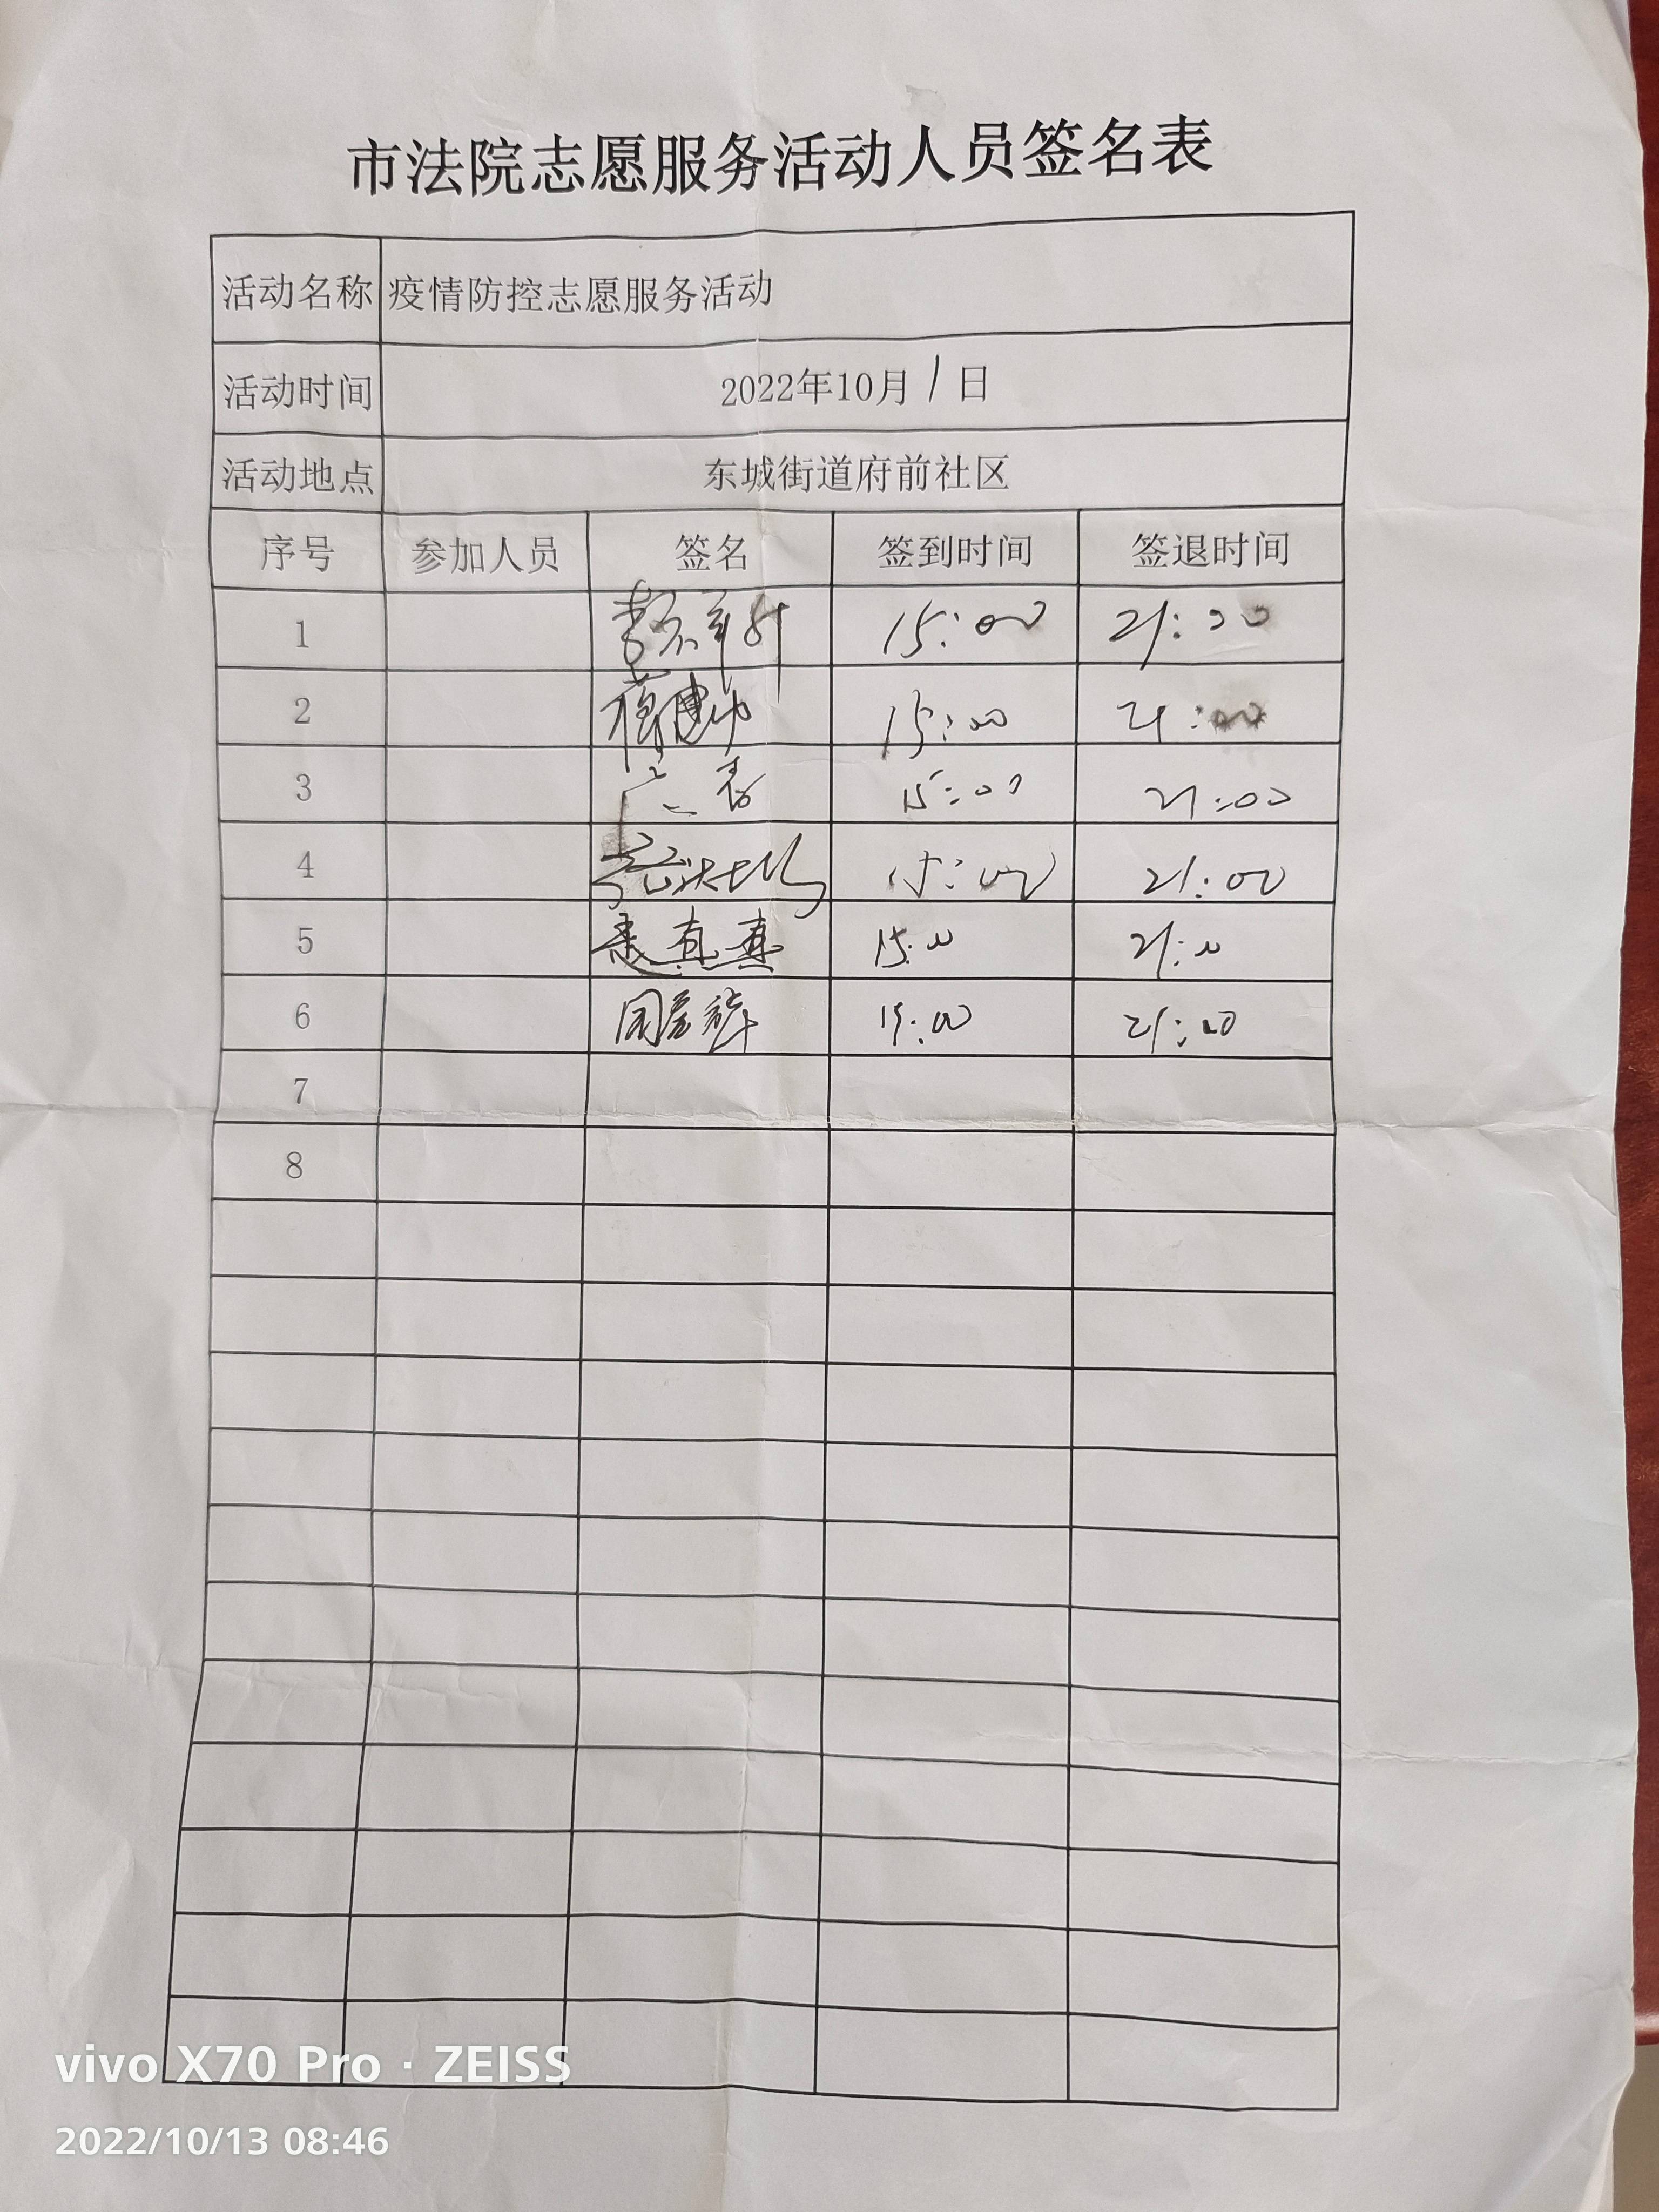 市法院志愿服务活动人员签名表
活动名称 疫情防控志愿服务活动
活动时间 2022年10月1日
活动地点 东城街道府前社区
序号 参加人员 签名 签到时间 签退时间
1 15:00 21:00
2 15:00 21:00
3 15:00 21:00
4 15:00 21:00
5 真真 15:00 21:00
6 15:00 21:00
7
8
vivo X70 Pro · ZEISS
2022/10/13 08:46